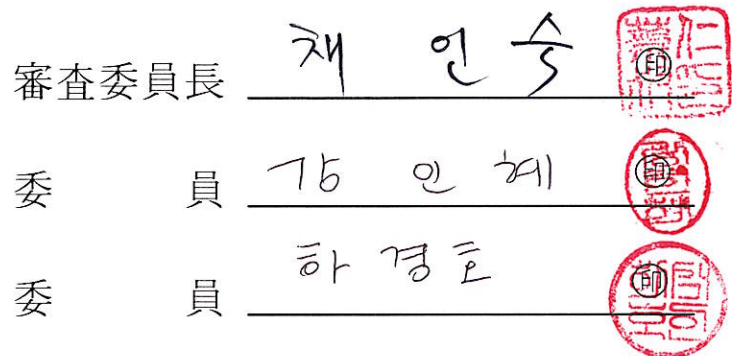 審査委員長 채 인 숙 ㊞
委 員 강 인 혜 ㊞
委 員 하 경 호 ㊞